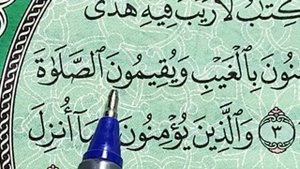 كِتَٰبُ لَا رَيْبَ فِيهِ هُدًى
مِنُونَ بِالْغَيْبِ وَيُقِيمُونَ الصَّلَاوةَ
٣ وَالَّذِينَ يُؤْمِنُونَ مَآ أُنزِلَ